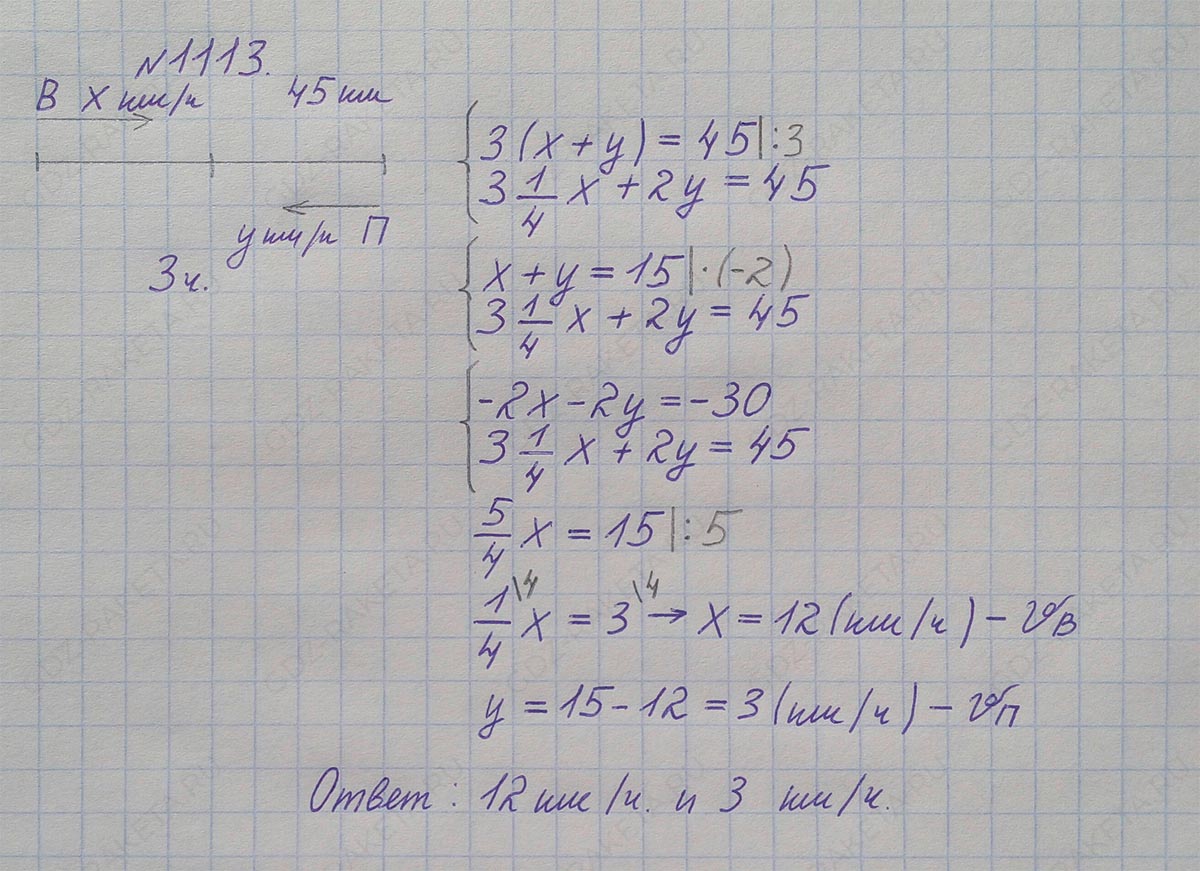 №1113.
В х км/ч 45 км
у км/ч П
3ч.
3(x+y)=45|:3
3 1/4 x+2y=45
x+y=15|·(-2)
3 1/4 x+2y=45
-2x-2y=-30
3 1/4 x+2y=45
5/4 x=15|:5
1/4\4 x=3\4→x=12(км/ч)-υв
y=15-12=3(км/ч)-υп
Ответ: 12км/ч. и 3 км/ч.
GDZ-RAKETA.RU